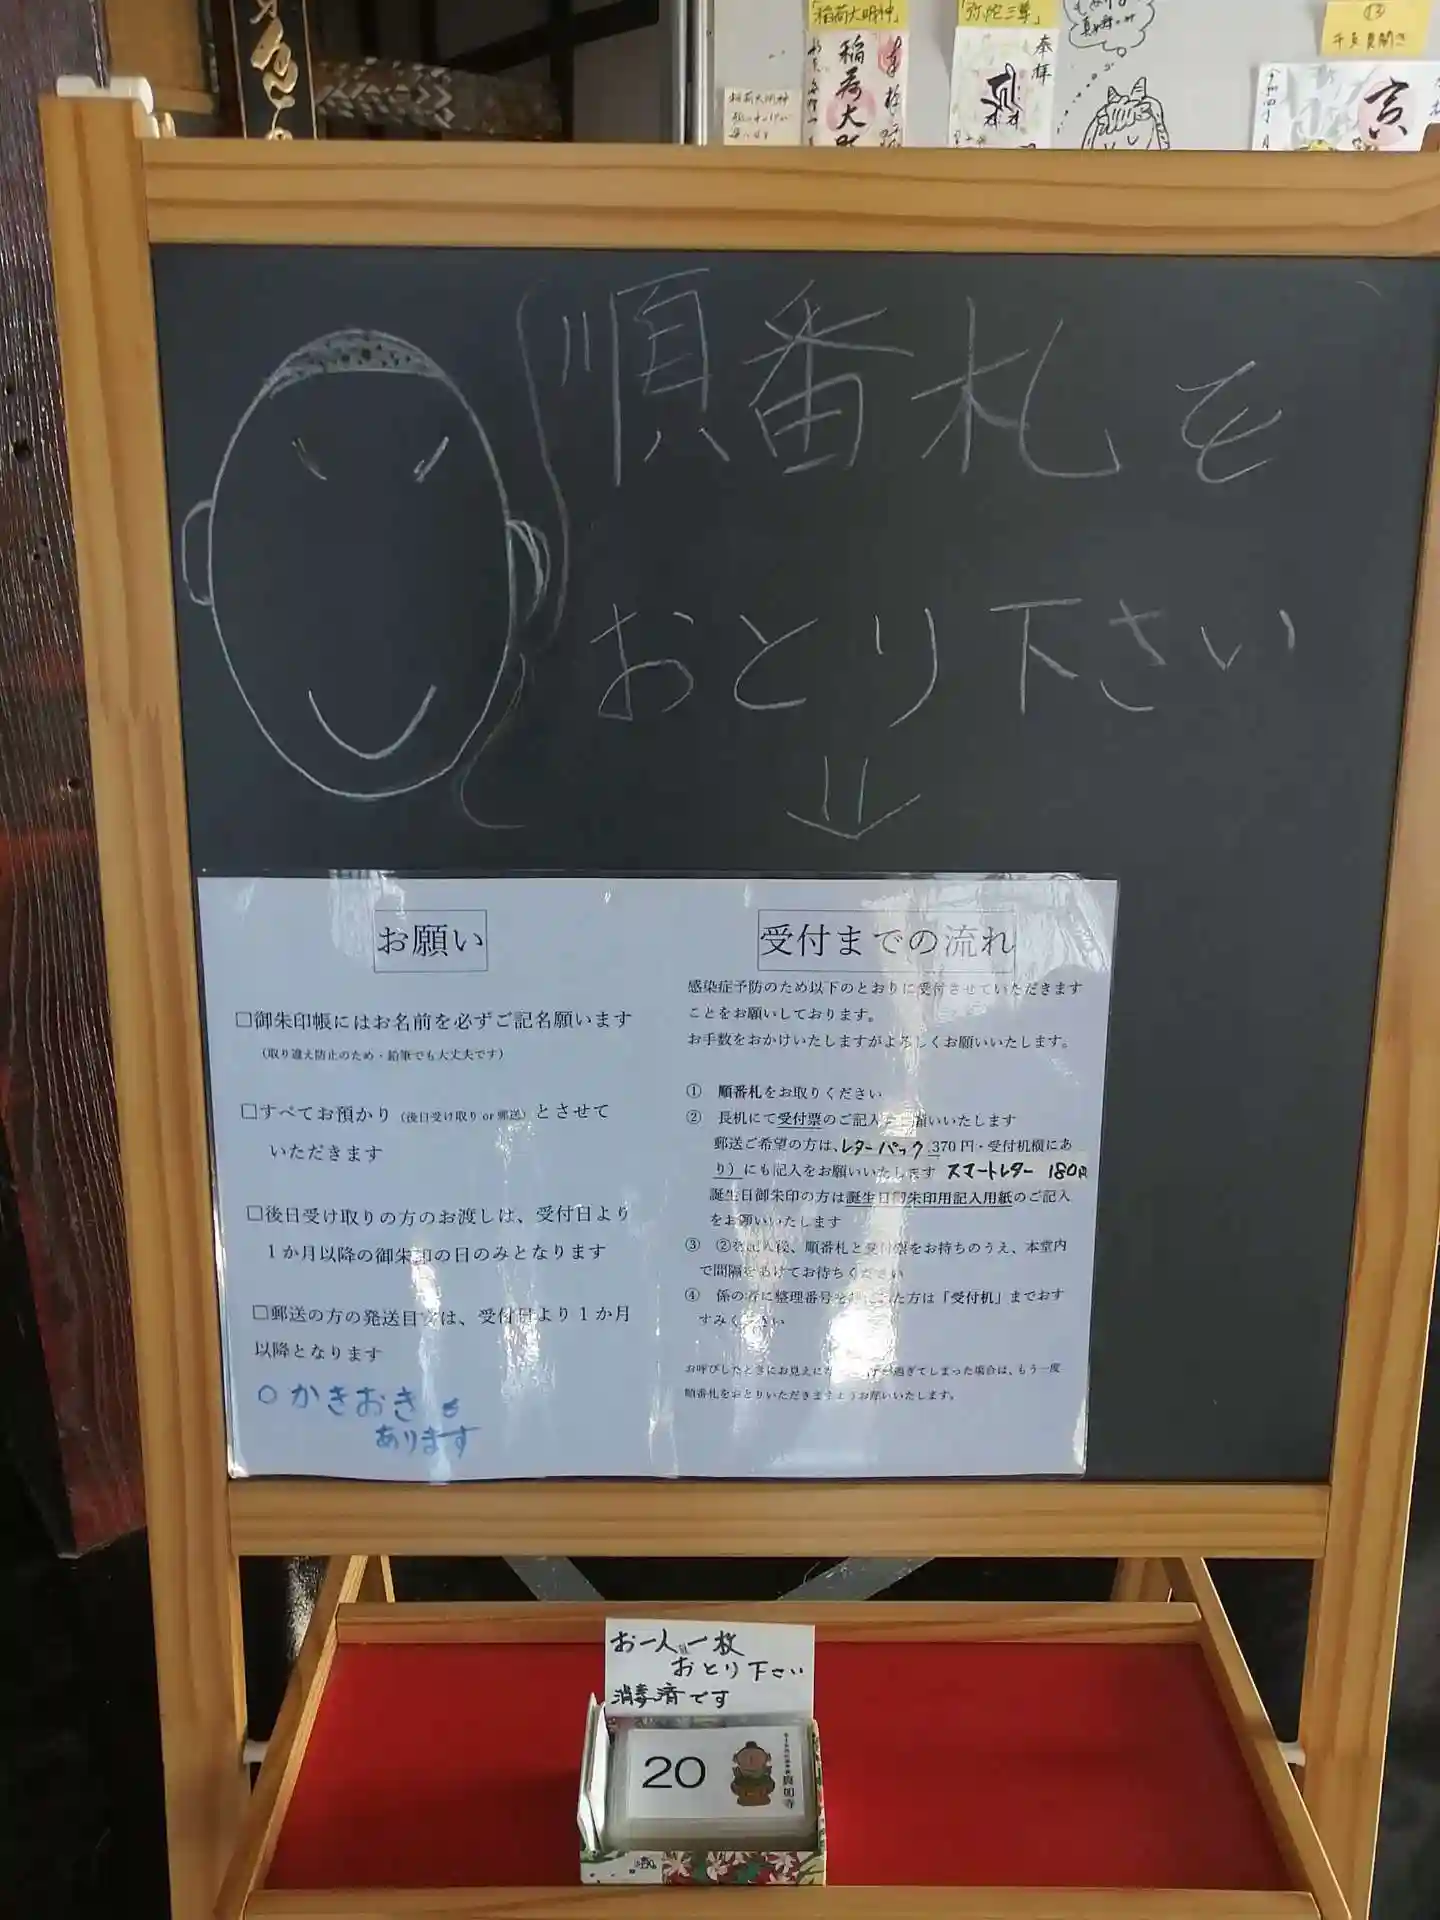 「稲荷大明神」
稲荷大
稲荷大明神
「弥陀三尊」
奉拝
⑬
寅
順番札を
おとり下さい
お願い
□御朱印帳にはお名前を必ずご記名願います
（取り違え防止のため・鉛筆でも大丈夫です）
□すべてお預かり（後日受け取りor郵送）とさせて
いただきます
□後日受け取りの方のお渡しは、受付日より
１か月以降の御朱印の日のみとなります
□郵送の方の発送目安は、受付日より１か月
以降となります
○かきおきも
あります
受付までの流れ
感染症予防のため以下のとおりに受付させていただきます
ことをお願いしております。
お手数をおかけいたしますがよろしくお願いいたします。
① 順番札をお取りください
② 長机にて受付票のご記入をお願いいたします
郵送ご希望の方は、レターパック 370円・受付机横にあ
り）にも記入をお願いいたします スマートレター 180円
誕生日御朱印の方は誕生日御朱印用記入用紙のご記入
をお願いいたします
③ ②を記入後、順番札と受付票をお持ちのうえ、本堂内
で間隔をあけてお待ちください
④ 係の者に整理番号を た方は「受付机」までおす
すみください
お呼びしたときにお見えに が過ぎてしまった場合は、もう一度
順番札をおとりいただきますようお願いいたします。
お一人一枚
おとり下さい
消毒済です
20
真如寺